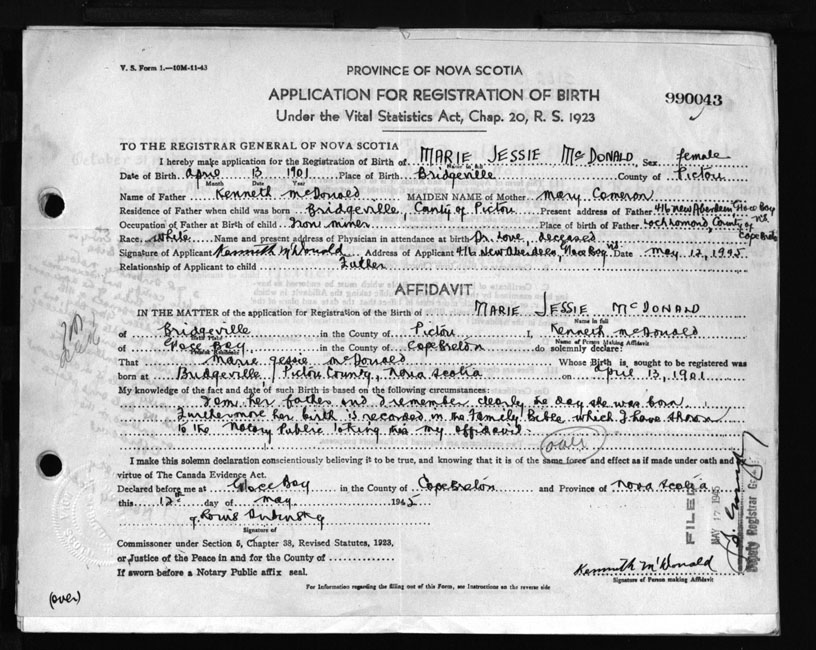 V. S. Form 1.—10M-11-43
PROVINCE OF NOVA SCOTIA
APPLICATION FOR REGISTRATION OF BIRTH
990043
Under the Vital Statistics Act, Chap. 20, R. S. 1923
TO THE REGISTRAR GENERAL OF NOVA SCOTIA
I hereby make application for the Registration of Birth of MARIE JESSIE McDONALD Sex female
Name in full
Date of Birth April 13 1901 Place of Birth Bridgeville County of Pictou
Month Date Year
Name of Father Kenneth McDonald MAIDEN NAME of Mother Mary Cameron
Residence of Father when child was born Bridgeville, County of Pictou Present address of Father 416 New Aberdeen, Glace Bay N.S.
Occupation of Father at Birth of child Iron miner Place of birth of Father Lochlomond, County of Cape Breton
Race white Name and present address of Physician in attendance at birth Dr. Love, deceased
Signature of Applicant Kenneth McDonald Address of Applicant 416 New Aberdeen, Glace Bay N.S. Date May 12, 1945
Relationship of Applicant to child Father
AFFIDAVIT
IN THE MATTER of the application for Registration of the Birth of MARIE JESSIE McDONALD
Name in full
of Bridgeville in the County of Pictou I, Kenneth McDonald
Birth Place
Name of Person Making Affidavit
of Glace Bay in the County of Cape Breton do solemnly declare:
Present Residence
That Marie Jessie McDonald Whose Birth is sought to be registered was
born at Bridgeville, Pictou County, Nova Scotia on April 13, 1901
My knowledge of the fact and date of such Birth is based on the following circumstances:
I am her father and I remember clearly the day she was born.
Furthermore her birth is recorded in the Family Bible which I have shown
to the Notary Public taking this my affidavit.
(over)
I make this solemn declaration conscientiously believing it to be true, and knowing that it is of the same force and effect as if made under oath and by
virtue of The Canada Evidence Act.
Declared before me at Glace Bay in the County of Cape Breton and Province of Nova Scotia
this 12th day of May 1945
Louis Dubinsky
Signature of
Commissioner under Section 5, Chapter 38, Revised Statutes, 1923,
or Justice of the Peace in and for the County of
If sworn before a Notary Public affix seal.
Kenneth McDonald
Signature of Person making Affidavit
For Information regarding the filling out of this Form, see Instructions on the reverse side
(over)
FILED
MAY 17 1945
Deputy Registrar General